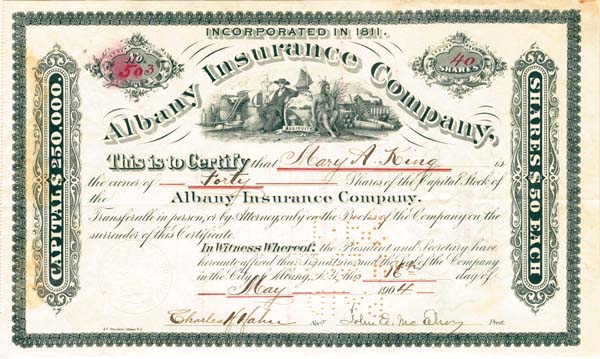 INCORPORATED IN 1811.
No 503
40 SHARES
Albany Insurance Company.
CAPITAL $ 250,000
SHARES $ 50 EACH
ASSIDUITY
This is to Certify that Mary A. King is
the owner of Forty Shares of the Capital Stock of
the Albany Insurance Company.
Transferable in person, or by Attorney, only on the Books of the Company on the
surrender of this Certificate.
In Witness Whereof, the President and Secretary have
hereunto affixed their Signatures and the Seal of the Company
in the City of Albany, N.Y. this 18th day of
May 1904
Charles H. Hahn Sec'y. John E. McElroy Prest.